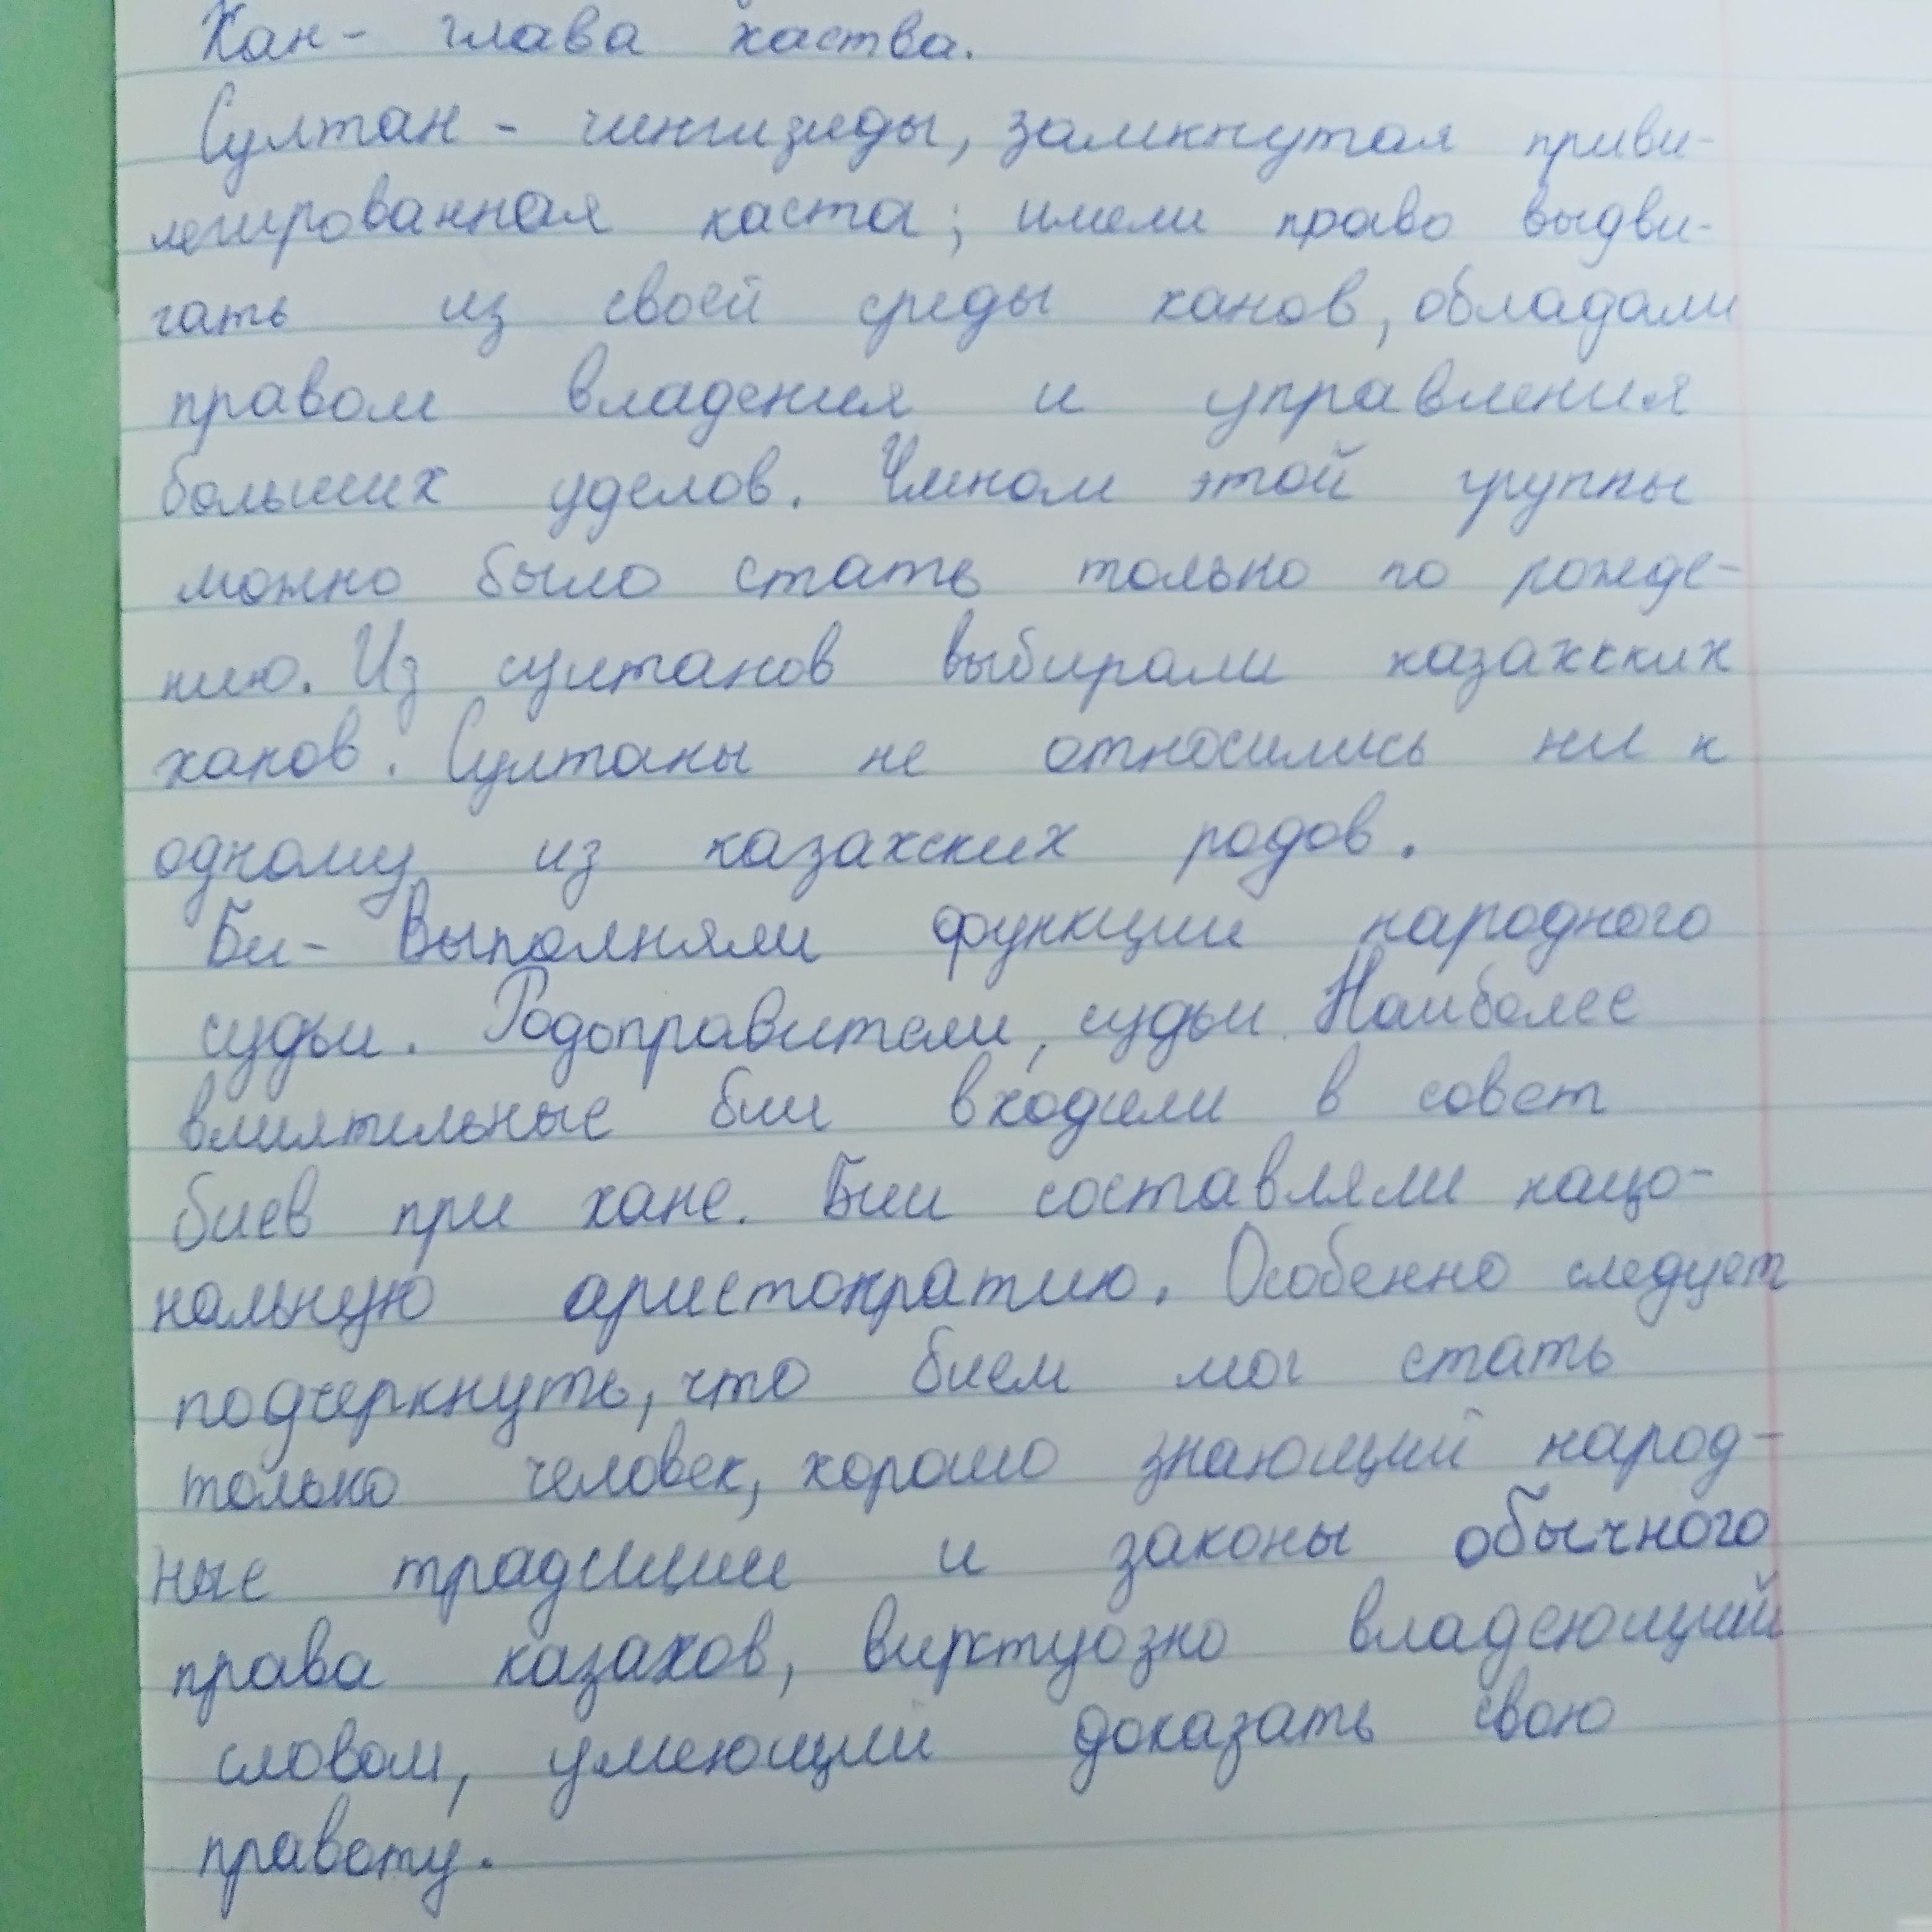 Хан- глава хаства.
Султан - чингизиды, замкнутая приви-
легированная каста; имели право выдви-
гать из своей среды ханов, обладали
правом владения и управления
больших уделов. Членом этой группы
можно было стать только по рожде-
нию. Из султанов выбирали казахских
ханов. Султаны не относились ни к
одному из казахских родов.
Би- Выполняли функции народного
судьи. Родоправители, судьи. Наиболее
влиятельные бии входили в совет
биев при хане. Бии составляли нацо-
нальную аристократию. Особенно следует
подчеркнуть, что бием мог стать
только человек, хорошо знающий народ-
ные традиции и законы обычного
права казахов, виртуозно владеющий
словом, умеющий доказать свою
правоту.